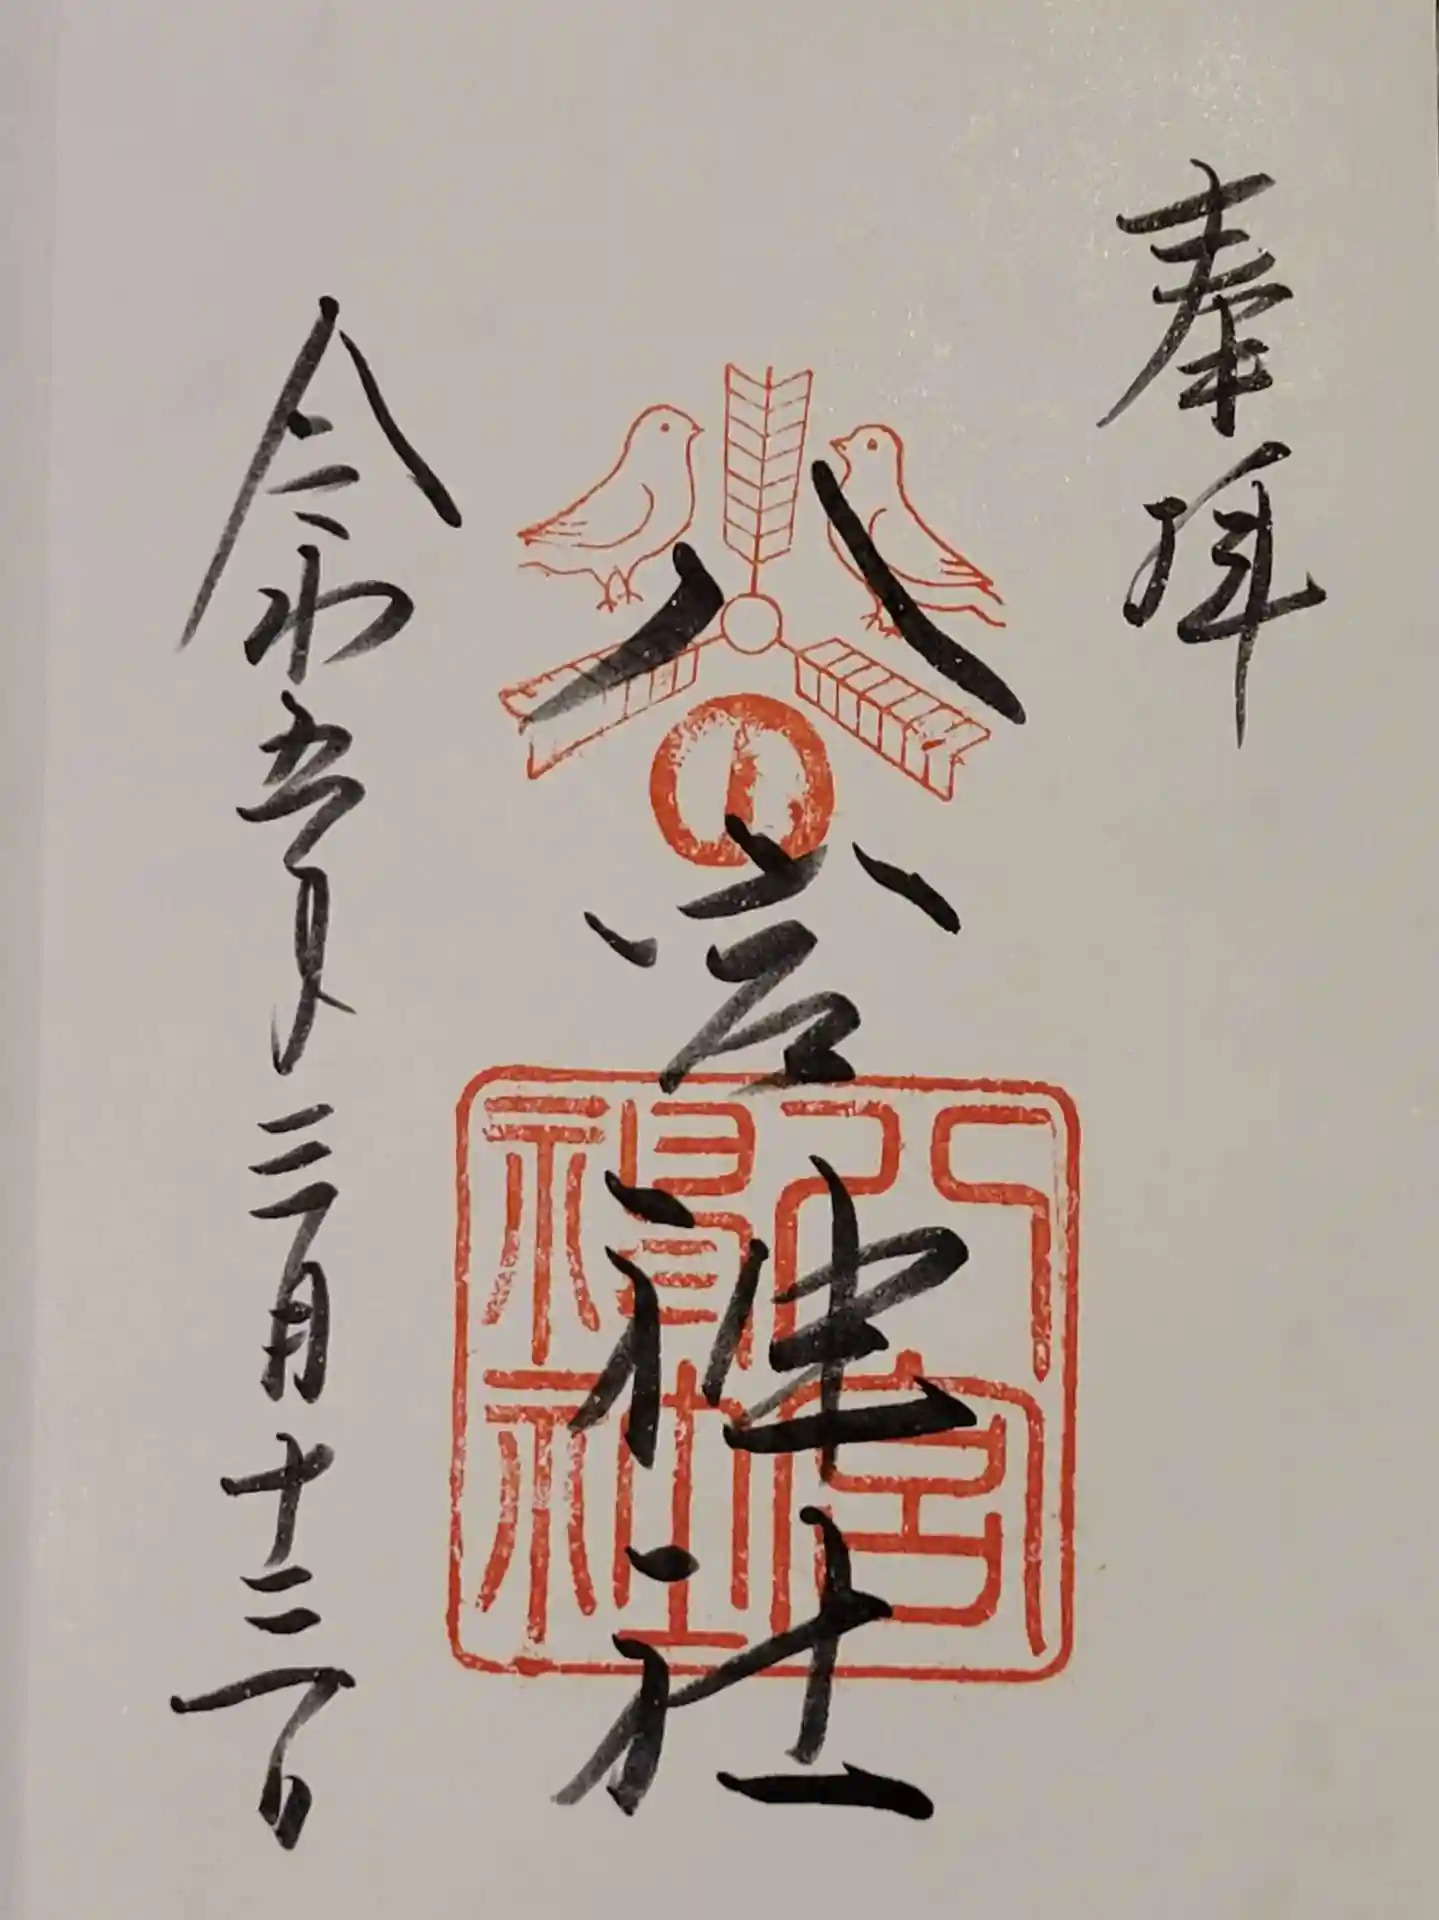 奉拝
八宮神社
八宮
神社
令和五年三月十三日